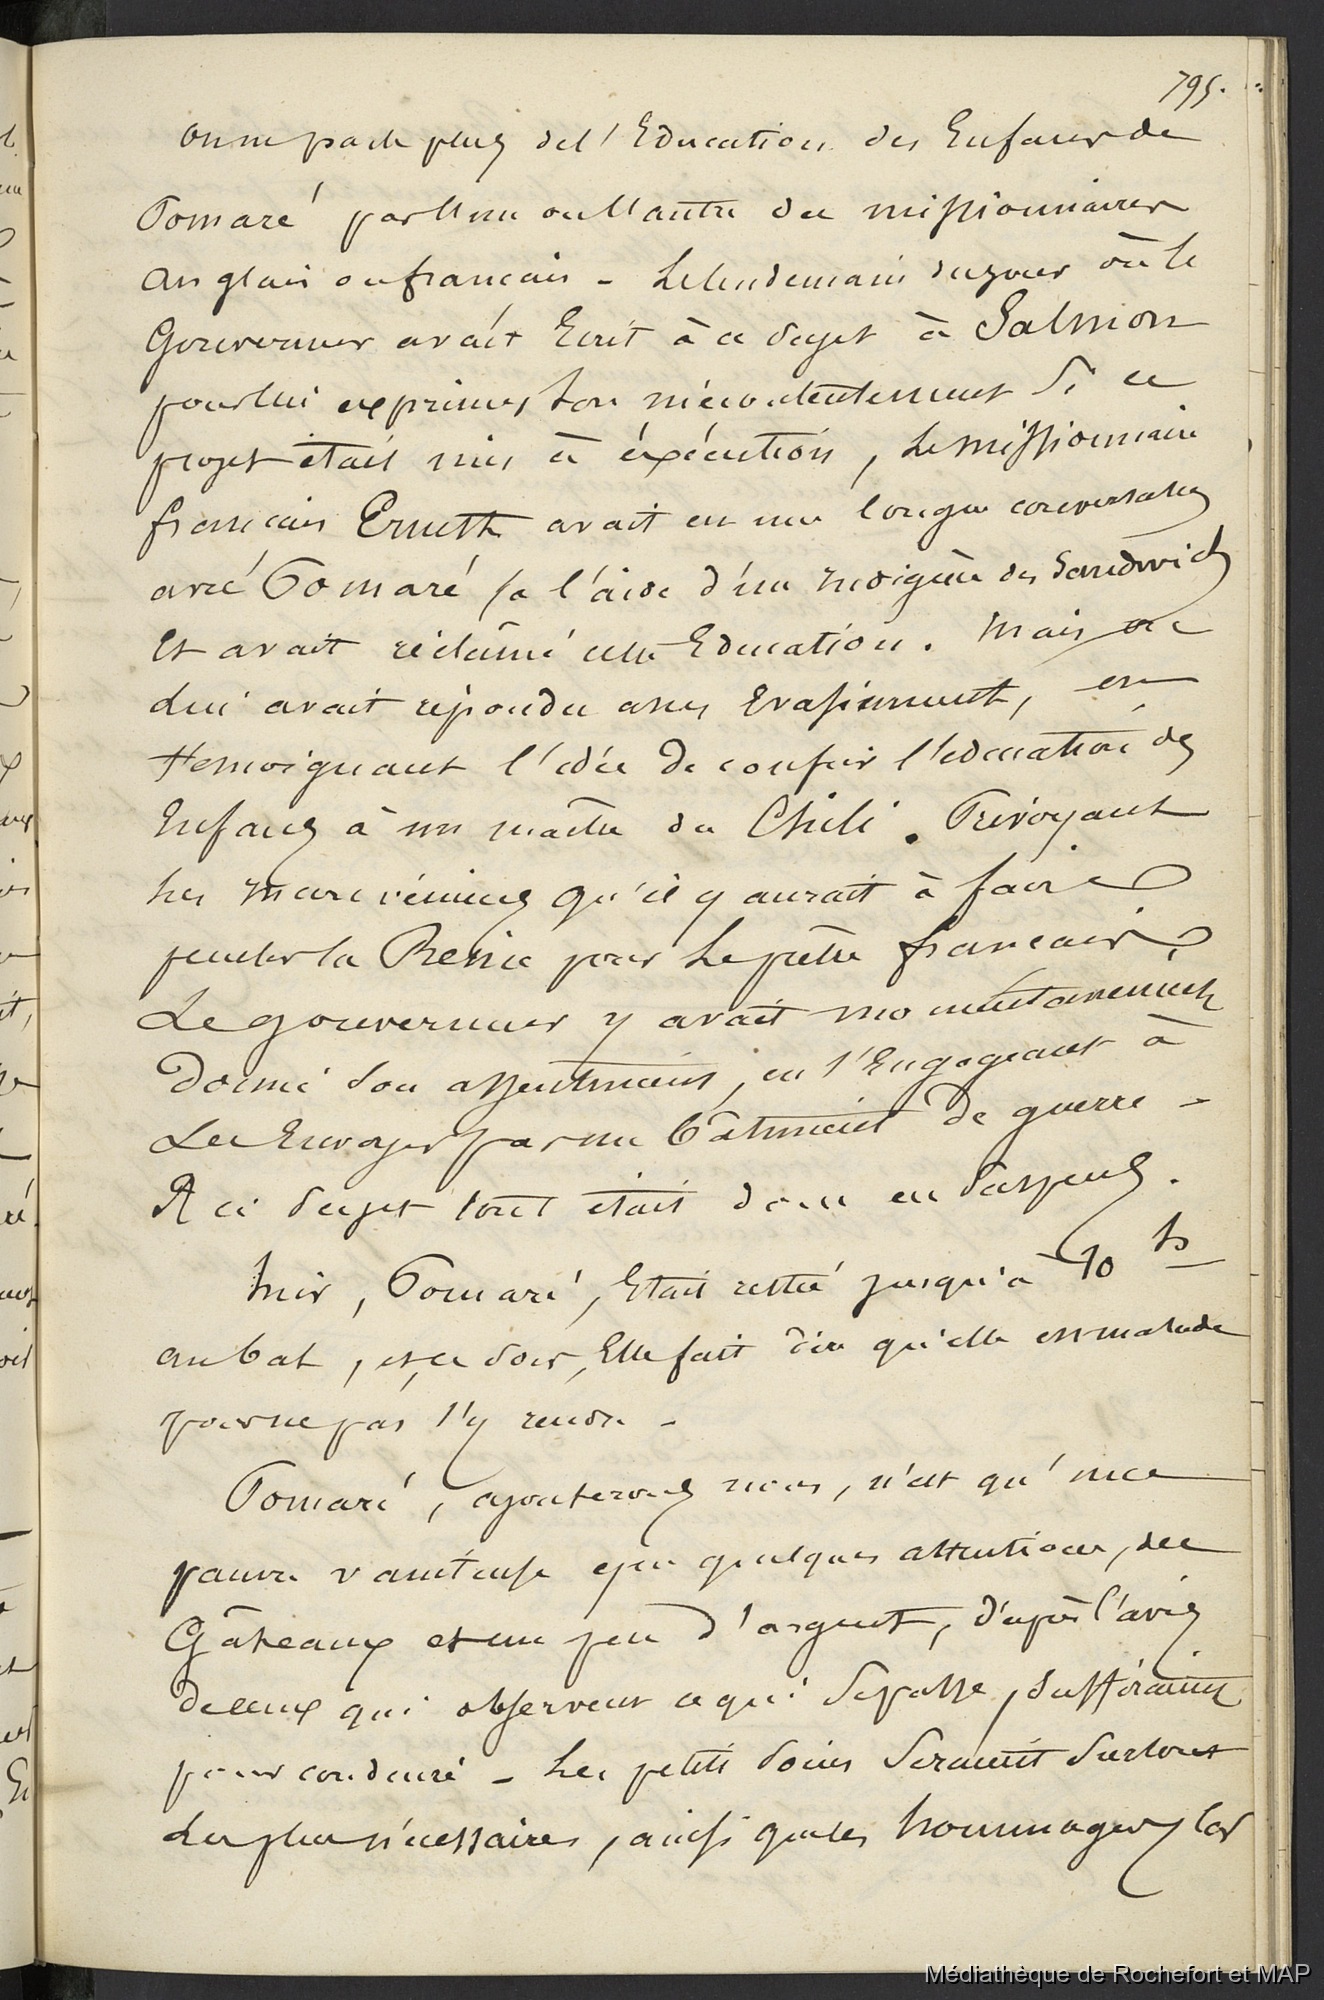 795.
on ne parle plus de l'Education des Enfans de
Pomaré par l'un ou l'autre des missionnaires
anglais ou français - Le lendemain du jour où le
Gouverneur avait Ecrit à ce sujet à Salmon
pour lui exprimer son mécontentement si ce
projet était mis à éxécution, le missionnaire
français Ernest avait eu une longue conversation
avec Pomaré à l'aide d'un indigène des Sandwich
Et avait réclamé cette Education. Mais on
lui avait répondu assez Evasivement, en
témoignant l'idée de confier l'éducation des
Enfans à un maître du Chili. Prévoyant
les qu'il y aurait à faire
pencher la Reine pour le prêtre français,
Le gouverneur y avait momentanément
donné son assentiment, en l'Engageant à
les Envoyer par un bâtiment de guerre -
A ce sujet tout était donc en suspens.
hier, Pomaré, Etait restée jusqu'à 10 h
au bal, et ce soir, Elle fait dire qu'elle est malade
pour ne pas s'y rendre -
Pomaré, ajouterons nous, n'est qu'une
pauvre vaniteuse que quelques attentions, des
Gâteaux et un peu d'argent, d'après l'avis
de ceux qui observent ce qui se passe, suffiraient
pour conduire - Les petits soins seraient surtout
les plus nécessaires, ainsi que les hommages, les
Médiathèque de Rochefort et MAP